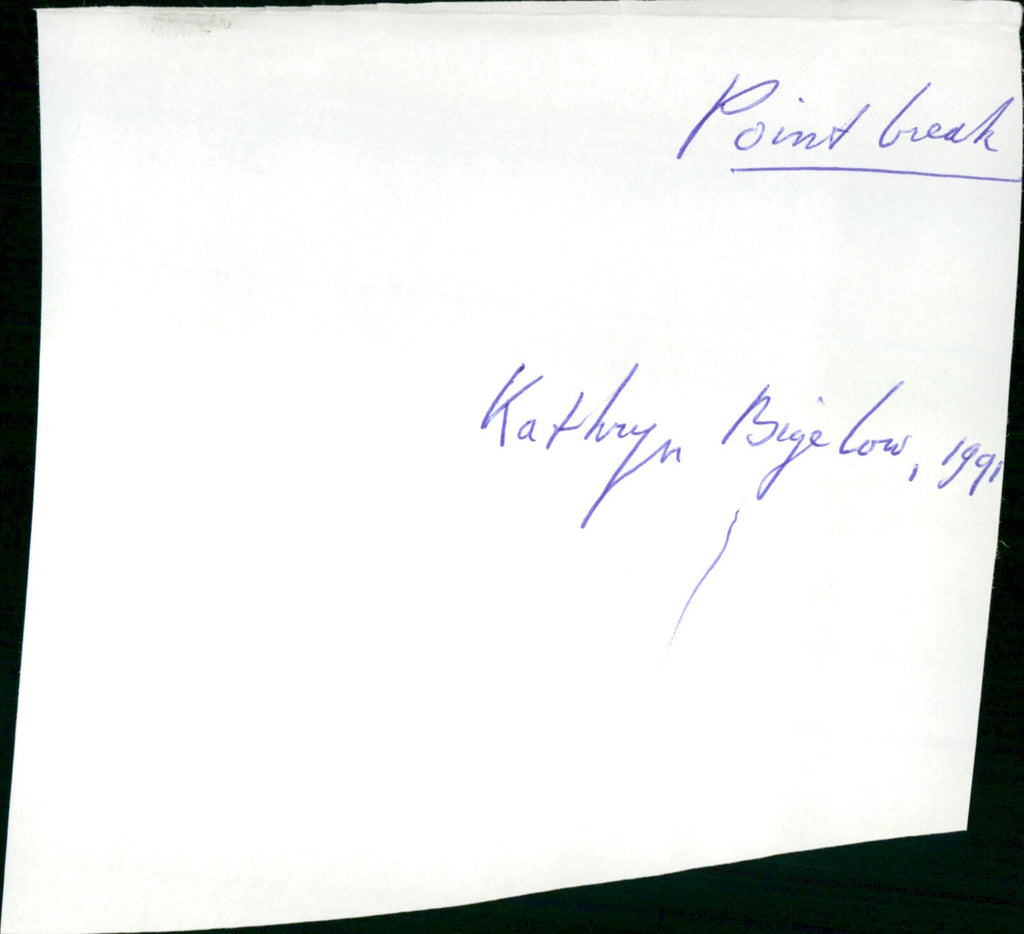 Point break
Kathryn Bigelow, 1991